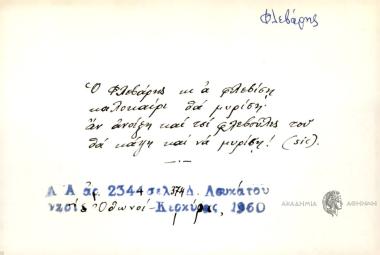 Φλεβάρης
Ὁ Φλεβάρης κι ἂ φλεβίση
καλοκαίρι θά μυρίση·
ἄν ἀνοίξη καί τσί φλεβοῦλες του
θά κάψη καί νά μυρίση! (sic).
Λ Α ἀρ. 2344 σελ. 374 Δ. Λουκάτου
νησίς Ὀθωνοί - Κερκύρας, 1960
ΑΚΑΔΗΜΙΑ ΑΘΗΝΩΝ